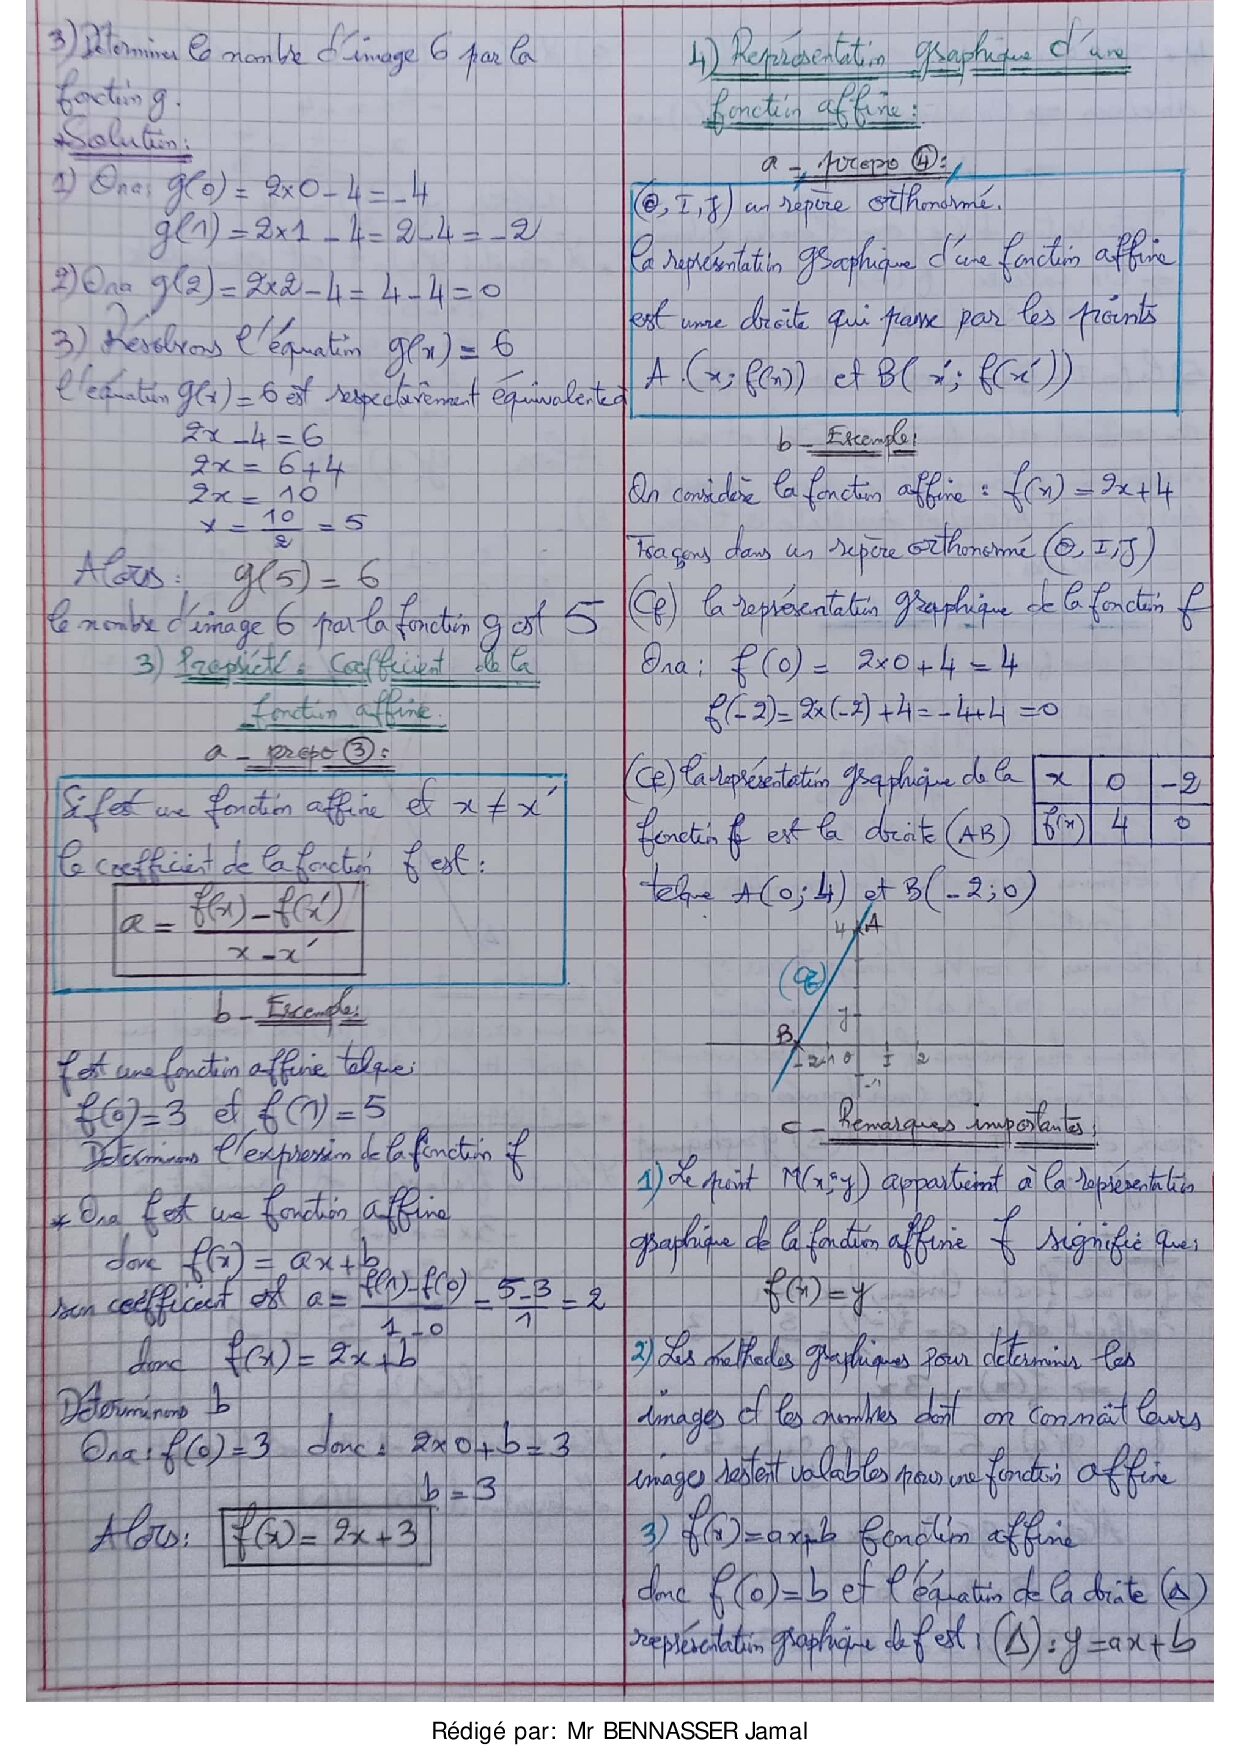 3) Déterminer le nombre d'image 6 par la
fonction g.
* Solution :
1) Ona: g(0) = 2x0 - 4 = -4
g(1) = 2x1 - 4 = 2-4 = -2
2) Ona g(2) = 2x2 - 4 = 4 - 4 = 0
3) Résolvons l'équation g(x) = 6
l'équation g(x) = 6 est respectivement équivalente à
2x - 4 = 6
2x = 6 + 4
2x = 10
x = 10/2 = 5
Alors: g(5) = 6
le nombre d'image 6 par la fonction g est 5
3) Propriété : Coefficient de la
fonction affine.
a - propo ③ :
Si f est une fonction affine et x ≠ x'
le coefficient de la fonction f est :
a = (f(x) - f(x')) / (x - x')
b - Exemple:
f est une fonction affine telque:
f(0)=3 et f(1)=5
Déterminons l'expression de la fonction f
* Ona f est une fonction affine
donc f(x) = ax+b
son coefficient est a = (f(1)-f(0)) / (1-0) = (5-3)/1 = 2
donc f(x) = 2x+b
Déterminons b
Ona: f(0)=3 donc: 2x0+b = 3
b = 3
Alors: f(x) = 2x+3
4) Représentation graphique d'une
fonction affine :
a - propo ④ :
(O, I, J) un repère orthonormé.
la représentation graphique d'une fonction affine
est une droite qui passe par les points
A (x; f(x)) et B( x'; f(x'))
b - Exemple:
On considère la fonction affine : f(x) = 2x+4
Traçons dans un repère orthonormé (O, I, J)
(Cf) la représentation graphique de la fonction f
Ona: f(0) = 2x0 + 4 = 4
f(-2) = 2x(-2)+4 = -4+4 = 0
(Cf) la représentation graphique de la
fonction f est la droite (AB)
telque A(0; 4) et B(-2; 0)
x 0 -2
f(x) 4 0
4 A
(Cf)
J
B
-2 -1 0 I 2
-1
c - Remarques importantes:
1) Le point M(x; y) appartient à la représentation
graphique de la fonction affine f signifie que:
f(x) = y
2) Les méthodes graphiques pour déterminer les
images et les nombres dont on connait leurs
images restent valables pour une fonction affine
3) f(x) = ax+b fonction affine
donc f(0)=b et l'équation de la droite (Δ)
représentation graphique de f est: (Δ): y = ax+b
Rédigé par: Mr BENNASSER Jamal